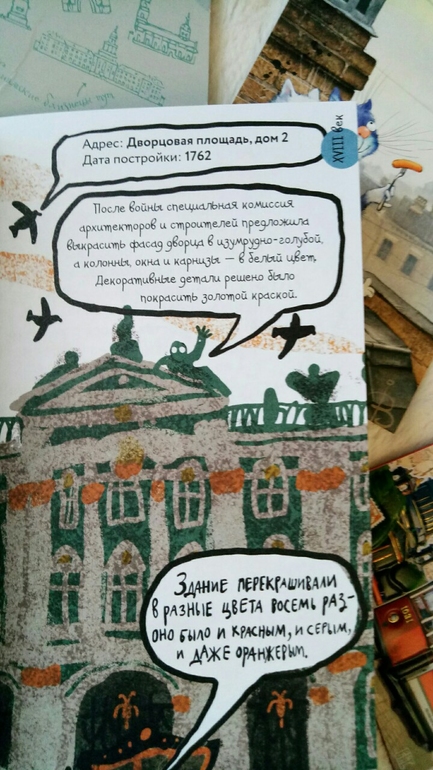 Адрес: Дворцовая площадь, дом 2
Дата постройки: 1762
XVIII век
После войны специальная комиссия
архитекторов и строителей предложила
выкрасить фасад дворца в изумрудно-голубой,
а колонны, окна и карнизы — в белый цвет.
Декоративные детали решено было
покрасить золотой краской.
Здание перекрашивали
в разные цвета восемь раз –
оно было и красным, и серым,
и даже оранжевым.